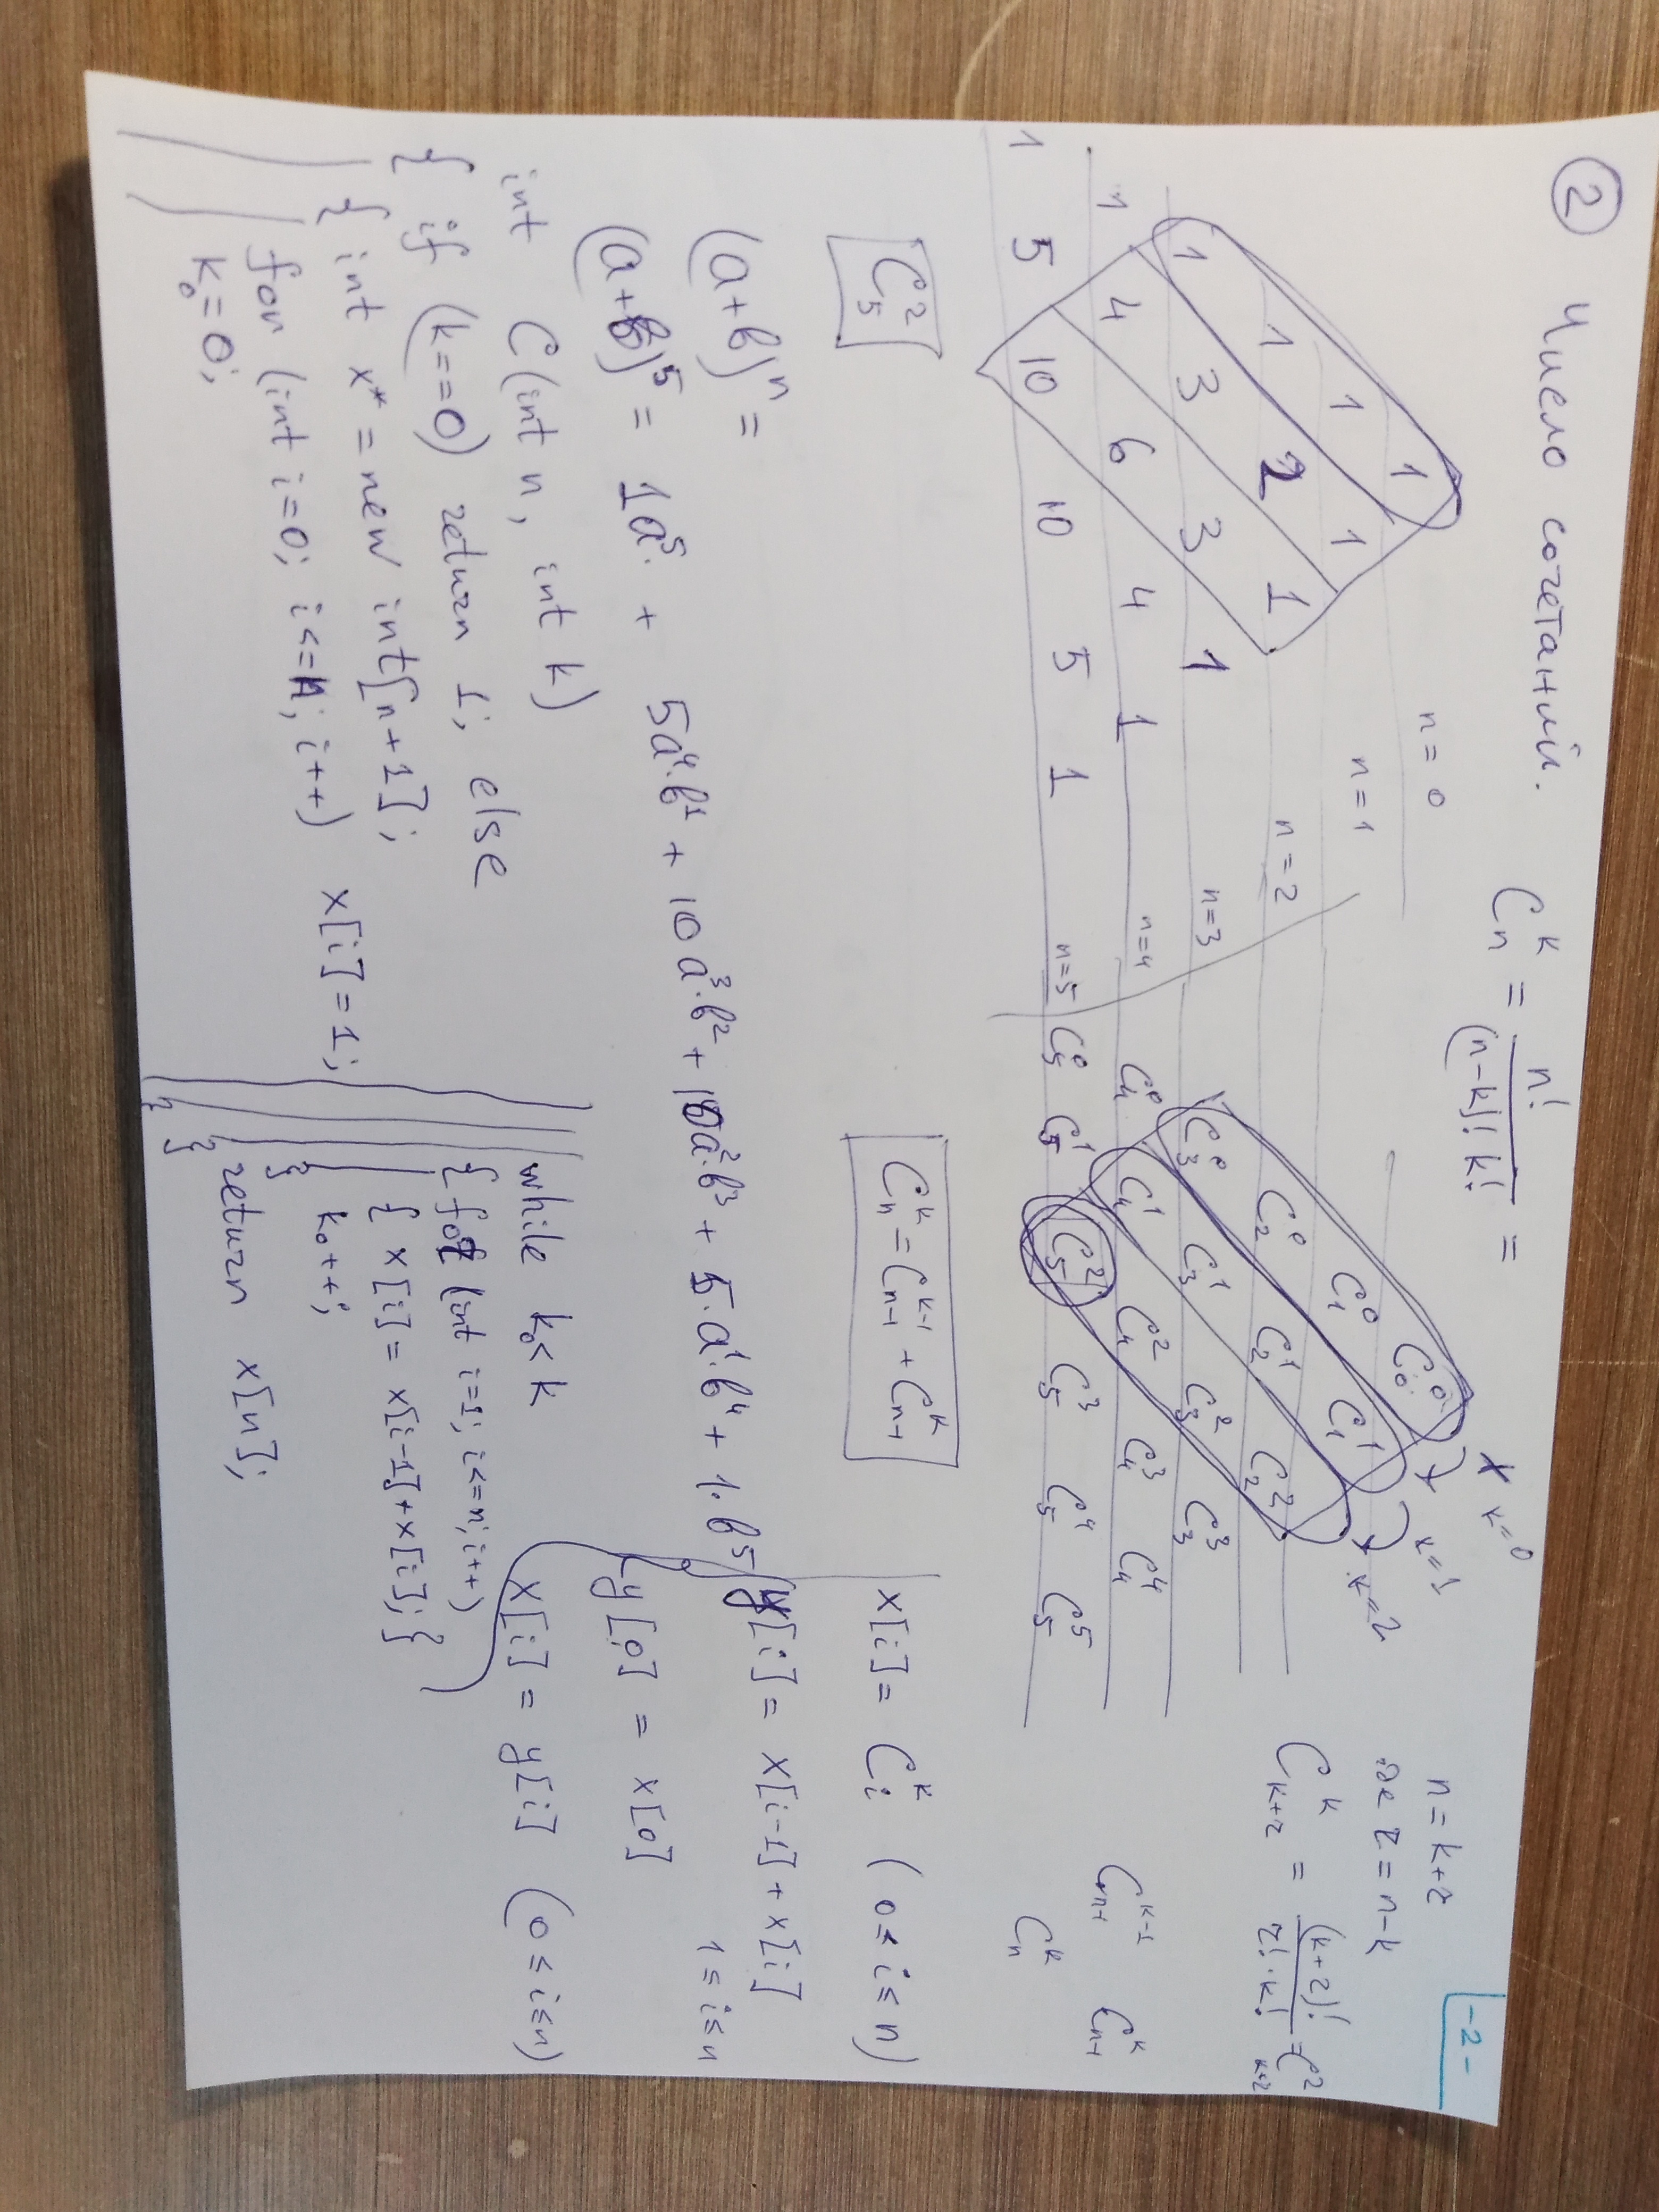 ② Число сочетаний.
C_n^k = n! / ((n-k)! k!) =
-2-
1 n = 0
1 1 n = 1
1 2 1 n = 2
1 3 3 1 n=3
1 4 6 4 1 n=4
1 5 10 10 5 1 n=5
x k=0
k=1
k=2
C_0^0
C_1^0 C_1^1
C_2^0 C_2^1 C_2^2
C_3^0 C_3^1 C_3^2 C_3^3
C_4^0 C_4^1 C_4^2 C_4^3 C_4^4
C_5^0 C_5^1 C_5^2 C_5^3 C_5^4 C_5^5
n = k+r
где r = n-k
C_{k+r}^k = (k+r)! / (r!·k!) = C_{k+r}^r
C_{n-1}^{k-1} C_{n-1}^k
C_n^k
C_5^2
C_n^k = C_{n-1}^{k-1} + C_{n-1}^k
x[i] = C_i^k (0 ≤ i ≤ n)
y[i] = x[i-1] + x[i]
1 ≤ i ≤ n
y[0] = x[0]
x[i] = y[i] (0 ≤ i ≤ n)
(a+b)^n =
(a+b)^5 = 1a^5· + 5a^4·b^1 + 10a^3·b^2 + 10a^2·b^3 + 5·a^1·b^4 + 1·b^5
int C(int n, int k)
{ if (k==0) return 1; else
{ int x* = new int[n+1];
for (int i=0; i<=n; i++) x[i]=1;
k₀=0;
while k₀<k
{ for (int i=1; i<=n; i++)
{ x[i] = x[i-1]+x[i]; }
k₀++;
}
return x[n];
}
}